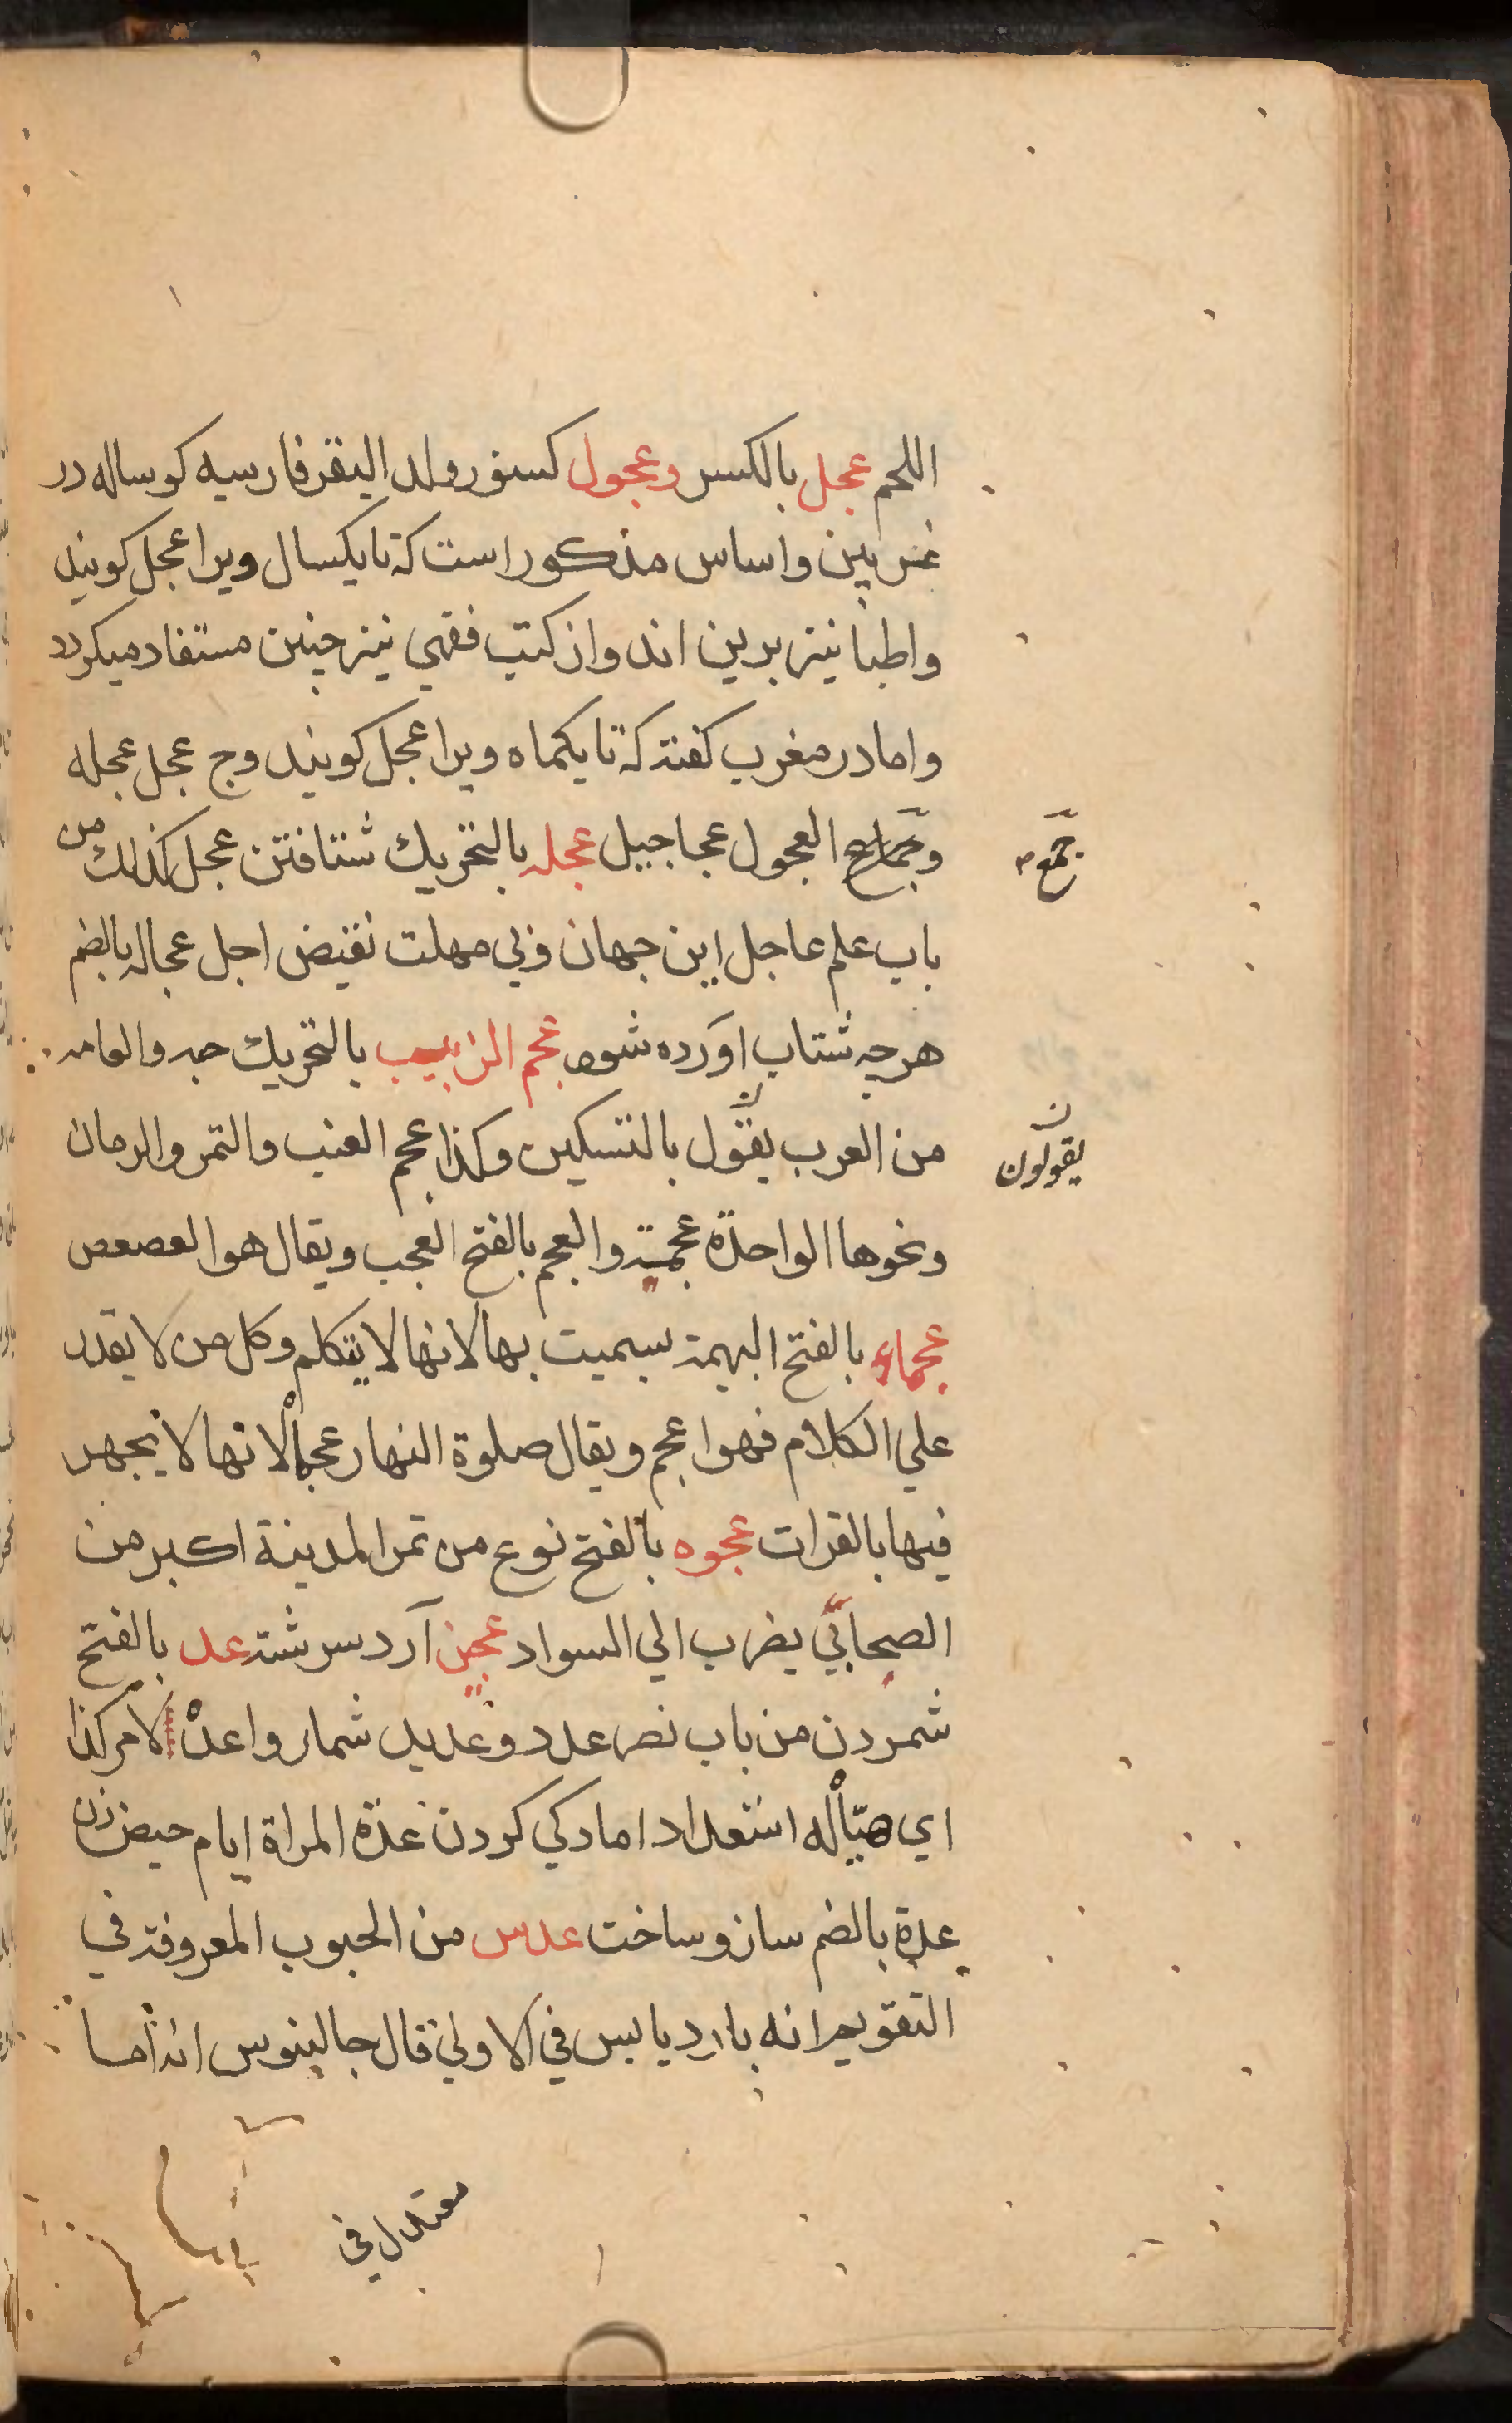 اللحم عجل بالكسر وعجول كسنور ولد البقر فارسيه كوساله در
غريبين واساس مذكور است كه تا يكسال ويرا عجل كويند
واطبا نيز برين اند واز كتب فقهي نيز چنين مستفاد ميكردد
واما در مغرب كفته كه تا يكماه ويرا عجل كويند وج عجل عجله
وجماع العجول عجاجيل عجله بالتحريك شتافتن عجل كذلك من
جمع
باب علم عاجل اين جهان وبي مهلت نقيض اجل عجاله بالضم
هرچه شتاب آورده شود عجم الزبيب بالتحريك حبه والعامه
من العرب يقول بالتسكين وكذا عجم العنب والتمر والرمان
يقولون
ونحوها الواحدة عجمة والعجم بالفتح العجب ويقال هو العصعص
عجماء بالفتح البهيمة سميت بها لانها لا يتكلم وكل من لا يقدر
علي الكلام فهو اعجم ويقال صلوة النهار عجما لانها لا يجهر
فيها بالقرات عجوه بالفتح نوع من تمر المدينة اكبر من
الصيحاني يضرب الي السواد عجين آرد سرشته عد بالفتح
شمردن من باب نصر عدد وعديد شمار واعد لامر كذا
اي هيأ له استعداد امادكي كردن عدة المراة ايام حيض زن
عدة بالضم ساز وساخت عدس من الحبوب المعروفة في
التقويم انه بارد يابس في الاولي قال جالينوس انه اما
معتدل في